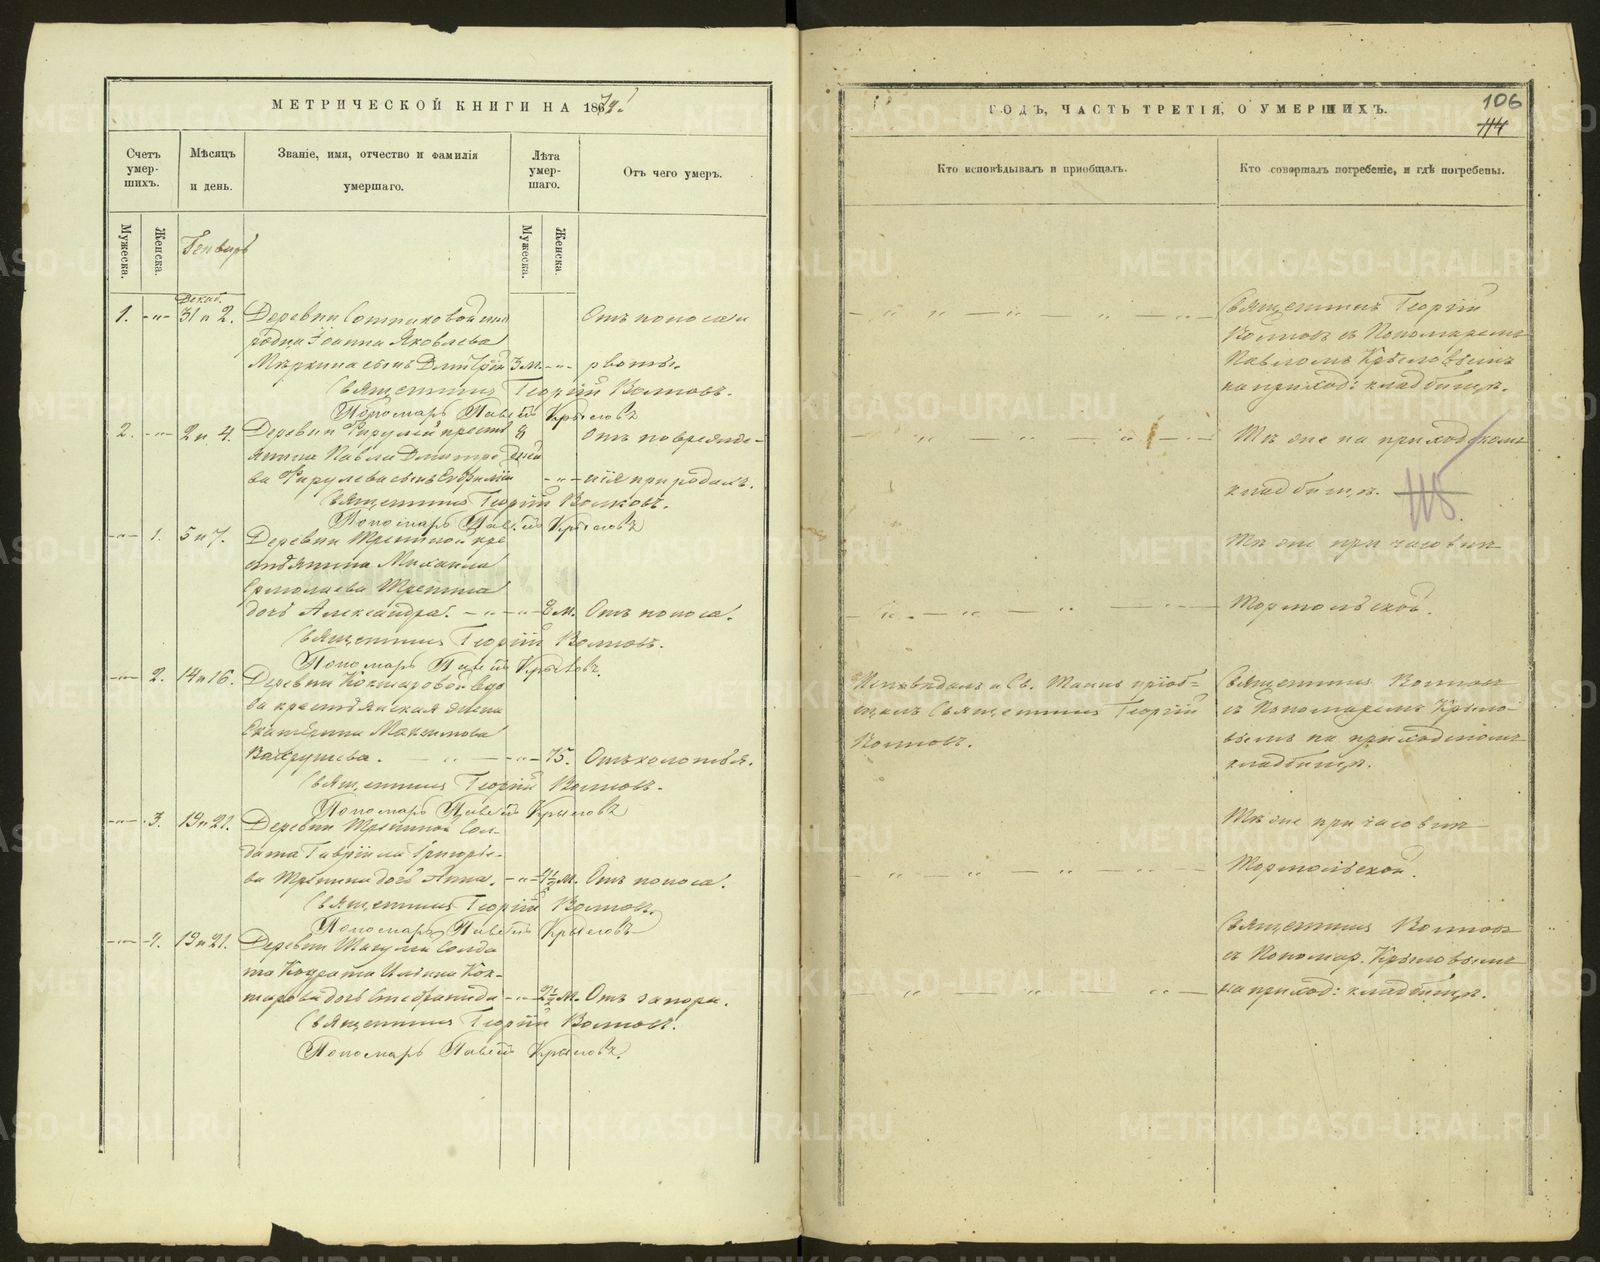 МЕТРИЧЕСКОЙ КНИГИ НА 1872/
Счетъ умер-шихъ.
Мѣсяцъ и день.
Званіе, имя, отчество и фамилія умершаго.
Лѣта умер-шаго.
Отъ чего умеръ.
Мужеска.
Женска.
Мужеска.
Женска.
Генварь
Декаб.
1. -"- 31 и 2. Деревни
родца Іоанна Яковлева
сынъ Дмитрій 3 м. -"-
Отъ поноса и
рвоты.
Священникъ Георгій Волковъ.
Пономарь Павелъ Крыловъ
2. -"- 2 и 4. Деревни Фирулей кресть
янина Павла Дмитріе
ва Фирулева сынъ
8 дней -"-
Отъ поврежде-
нія при родахъ.
Священникъ Георгій Волковъ.
Пономарь Павелъ Крыловъ
-"- 1. 5 и 7. Деревни кре
стьянина Михаила
Ермолаева
дочь Александра. -"- -"- 8 м. Отъ поноса.
Священникъ Георгій Волковъ.
Пономарь Павелъ Крыловъ.
-"- 2. 14 и 16. Деревни Кокшаровой вдо
ва крестьянская жена
Екатерина Максимова
Вахрушева. -"- -"- 75.
Священникъ Георгій Волковъ.
Пономарь Павелъ Крыловъ
-"- 3. 19 и 21. Деревни Сол-
дата Гавріила Григорье-
ва дочь Анна. -"- 1½ м. Отъ поноса.
Священникъ Георгій Волковъ.
Пономарь Павелъ Крыловъ
-"- 4. 19 и 21. Деревни Солда
та Кодрата Ильина Кок-
шарова дочь Степанида -"- 2½ м. Отъ запора.
Священникъ Георгій Волковъ.
Пономарь Павелъ Крыловъ.
ГОДЪ, ЧАСТЬ ТРЕТІЯ, О УМЕРШИХЪ.
106
114
Кто исповѣдывалъ и приобщалъ.
Кто совершалъ погребеніе, и гдѣ погребены.
Священникъ Георгій
Волковъ съ Пономаремъ
Павломъ Крыловымъ
на приход: кладбищѣ.
Тѣ же на приходскомъ
кладбищѣ.
115
Тѣ же при часовнѣ
Исповѣдалъ и Св. Таинъ пріоб-
щалъ Священникъ Георгій
Волковъ.
Священникъ Волковъ
съ Пономаремъ Крыло-
вымъ на приходскомъ
кладбищѣ.
Тѣ же при часовнѣ
Священникъ Волковъ
съ Пономар. Крыловымъ
на приход: кладбищѣ.
METRIKI.GASO-URAL.RU